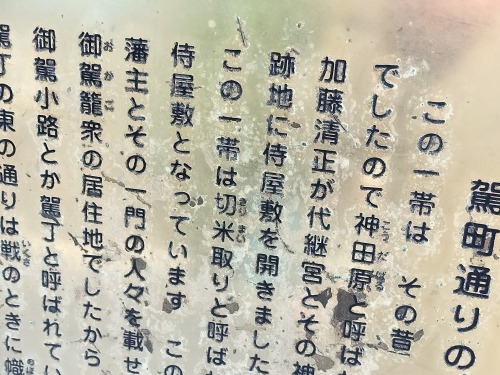 駕町通りの
この一帯は その昔
でしたので神田原と呼ば
加藤清正が代継宮とその神
跡地に侍屋敷を開きました
この一帯は切米取りと呼ば
侍屋敷となっています この
藩主とその一門の人々を載せ
御駕籠衆の居住地でしたから
御駕小路とか駕丁と呼ばれてい
駕町の東の通りは戦のときに幟